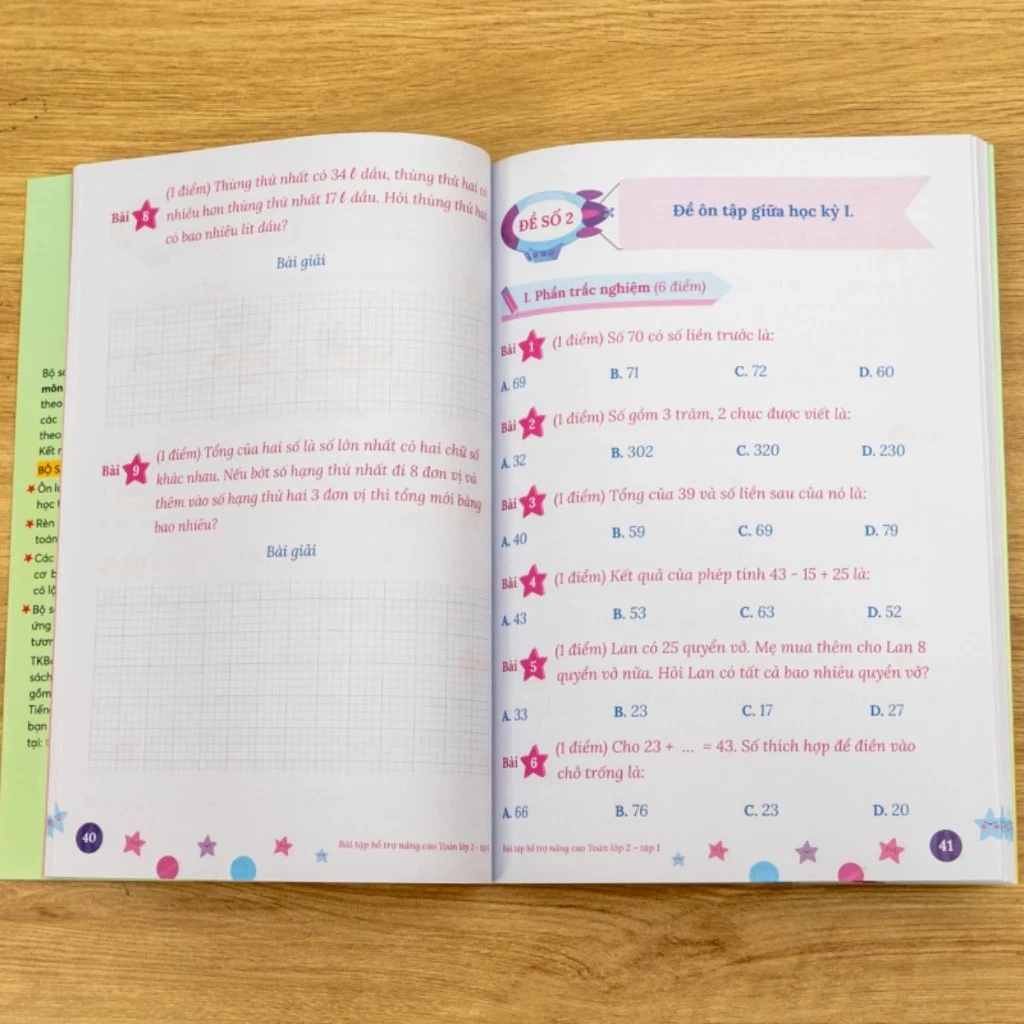 Bộ s
môn
theo
các
theo
Kết
BỘ S
học
Rèn
toán
Các
cơ b
có lộ
Bộ s
ứng
tươn
sách
gồm
Tiến
bạn
tại:
Bài 8 (1 điểm) Thùng thứ nhất có 34 ℓ dầu, thùng thứ hai có
nhiều hơn thùng thứ nhất 17 ℓ dầu. Hỏi thùng thứ hai
có bao nhiêu lít dầu?
Bài giải
Bài 9 (1 điểm) Tổng của hai số là số lớn nhất có hai chữ số
khác nhau. Nếu bớt số hạng thứ nhất đi 8 đơn vị và
thêm vào số hạng thứ hai 3 đơn vị thì tổng mới bằng
bao nhiêu?
Bài giải
40
Bài tập bổ trợ nâng cao Toán lớp 2 - tập 1
ĐỀ SỐ 2
Đề ôn tập giữa học kỳ I.
I. Phần trắc nghiệm (6 điểm)
Bài 1 (1 điểm) Số 70 có số liền trước là:
A. 69 B. 71 C. 72 D. 60
Bài 2 (1 điểm) Số gồm 3 trăm, 2 chục được viết là:
A. 32 B. 302 C. 320 D. 230
Bài 3 (1 điểm) Tổng của 39 và số liền sau của nó là:
A. 40 B. 59 C. 69 D. 79
Bài 4 (1 điểm) Kết quả của phép tính 43 - 15 + 25 là:
A. 43 B. 53 C. 63 D. 52
Bài 5 (1 điểm) Lan có 25 quyển vở. Mẹ mua thêm cho Lan 8
quyển vở nữa. Hỏi Lan có tất cả bao nhiêu quyển vở?
A. 33 B. 23 C. 17 D. 27
Bài 6 (1 điểm) Cho 23 + ... = 43. Số thích hợp để điền vào
chỗ trống là:
A. 66 B. 76 C. 23 D. 20
Bài tập bổ trợ nâng cao Toán lớp 2 - tập 1
41